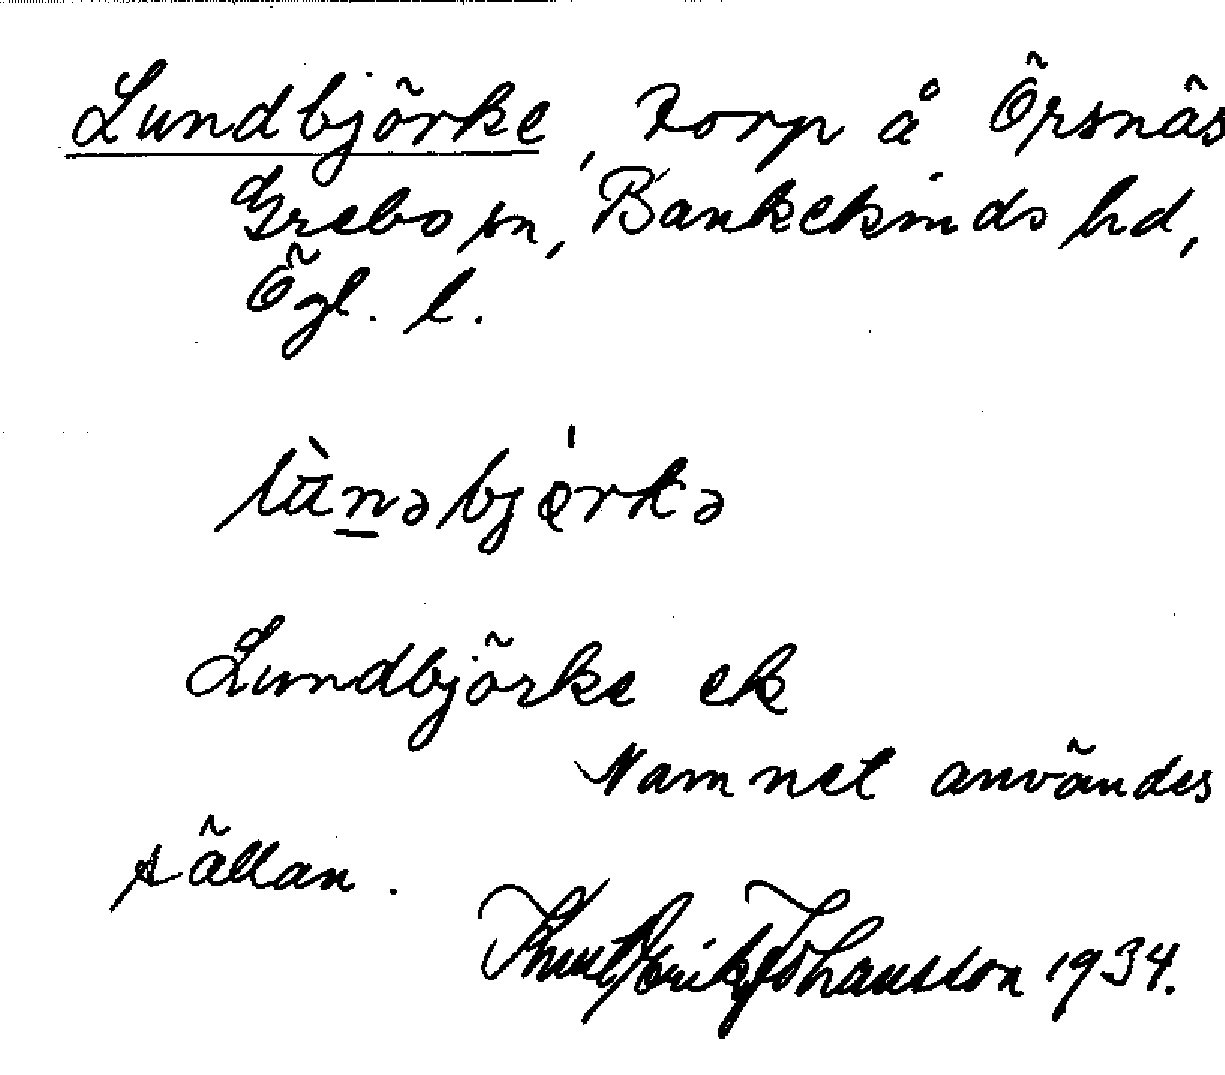 Lundbjörke, torp å Örsnäs
Grebo sn, Bankekinds hd,
Ögl. l.
lùnəbjo̩rkə
Lundbjörke ek
Namnet användes
sällan.
Knut Erik Johansson 1934.